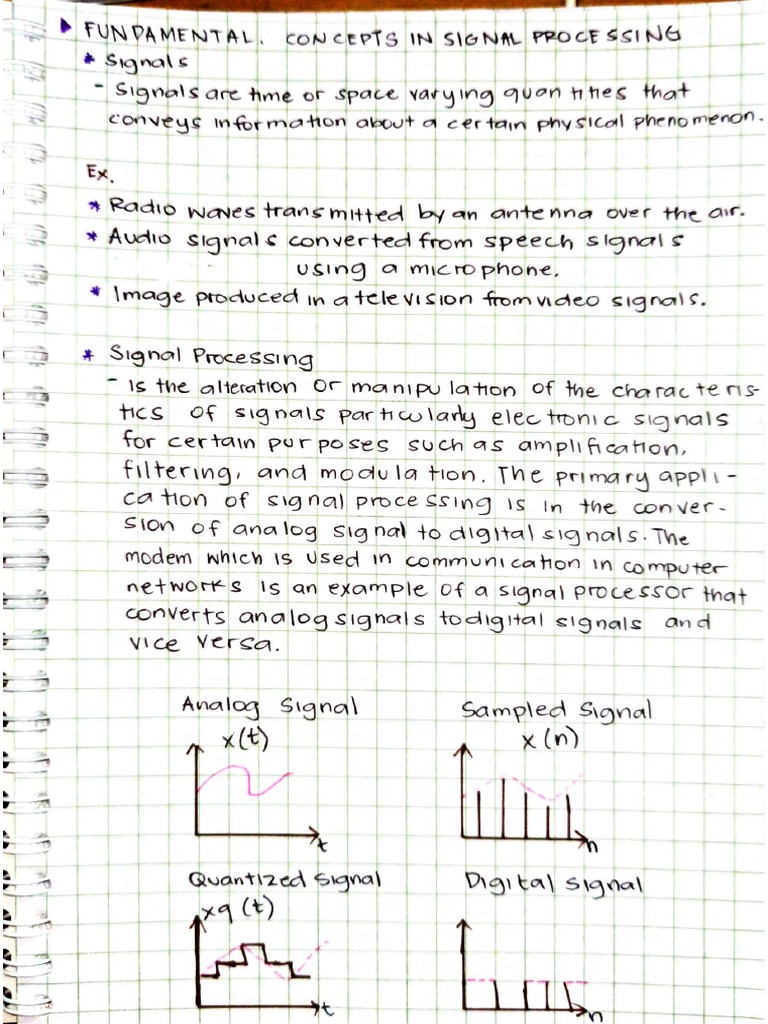 FUNDAMENTAL. CONCEPTS IN SIGNAL PROCESSING
* Signals
- Signals are time or space varying quantities that
conveys information about a certain physical phenomenon.
Ex.
* Radio waves transmitted by an antenna over the air.
* Audio signals converted from speech signals
using a microphone.
* Image produced in a television from video signals.
* Signal Processing
- Is the alteration or manipulation of the characteris-
tics of signals particularly electronic signals
for certain purposes such as amplification,
filtering, and modulation. The primary appli-
cation of signal processing is in the conver-
sion of analog signal to digital signals. The
modem which is used in communication in computer
networks is an example of a signal processor that
converts analog signals to digital signals and
vice versa.
Analog Signal
x(t)
t
Sampled Signal
x(n)
n
Quantized Signal
xq(t)
t
Digital Signal
n